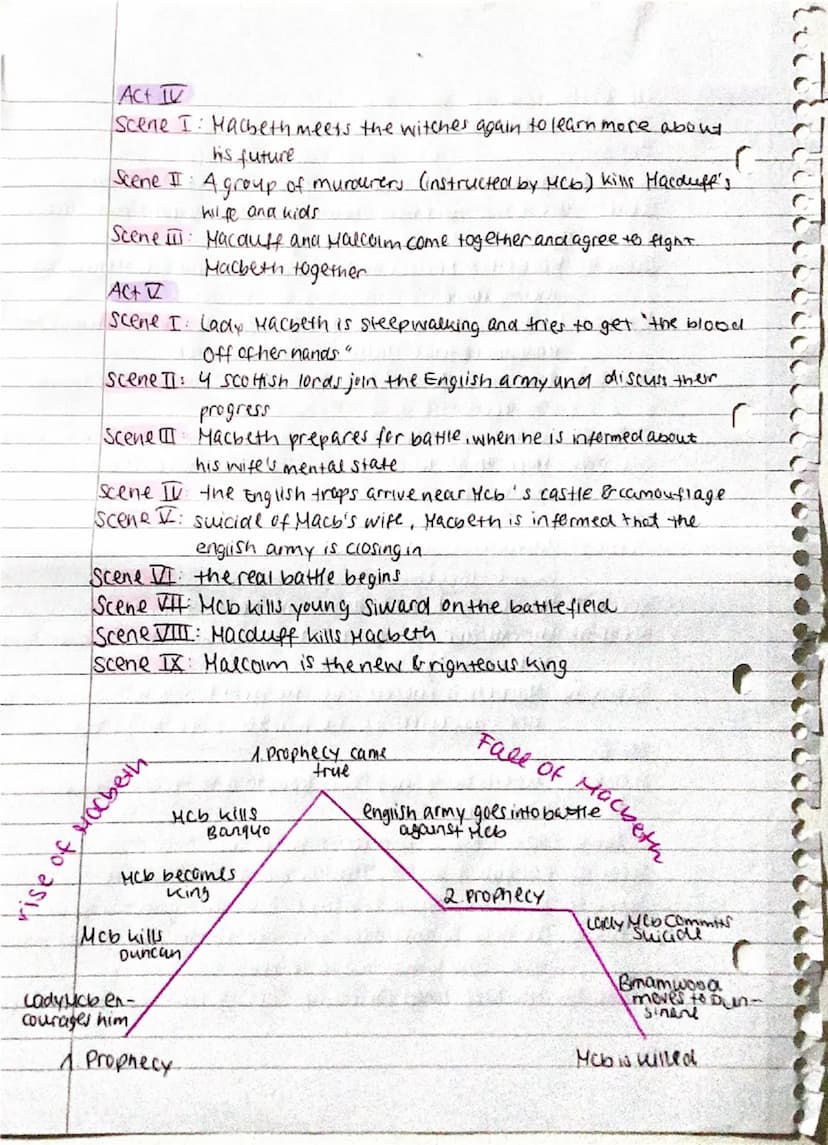 Act IV
Scene I: Macbeth meets the witches again to learn more about
his future
Scene II: A group of murdurers (instructed by Mcb) kills Macduff's
wife and kids
Scene III: Macduff and Malcolm come together and agree to fight
Macbeth together
Act V
Scene I: Lady Macbeth is sleepwalking and tries to get "the blood
off of her hands"
Scene II: 4 scottish lords join the English army and discuss their
progress
Scene III: Macbeth prepares for battle, when he is informed about
his wife's mental state
Scene IV: the English trops arrive near Mcb's castle & camouflage
Scene V: suicidal of Macb's wife, Macbeth is informed that the
english army is closing in
Scene VI: the real battle begins
Scene VII: Mcb kills young Siward on the battlefield
Scene VIII: Macduff kills Macbeth
Scene IX: Malcolm is the new & righteous king
rise of Macbeth
Fall of Macbeth
1. Prophecy came
true
Mcb kills
Banquo
english army goes into battle
against Mcb
Mcb becomes
King
2. prophecy
Mcb kills
Duncan
Lady Mcb commits
suicide
Lady Mcb en-
courages him
Birnamwood
moves to Dun-
sinane
1. Prophecy
Mcb is killed